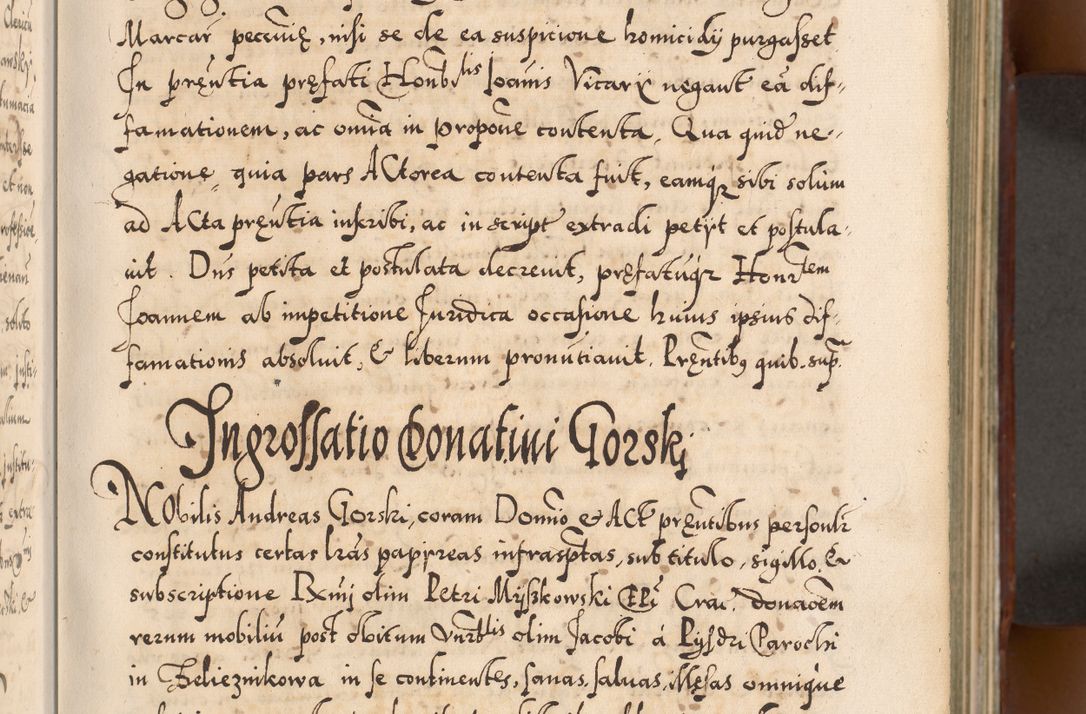 Marcar pecunię, nisi se de ea suspicione homicidij purgasset
In pręntia pręfati Honbilis Joanis Vicarij negant eā dif-
famationem, ac omnia in propone contenta. Qua quidē ne-
gatione quia pars ACtorea contenta fuit, eamq sibi solum
ad ACta pręntia inscribi, ac in script extradi petijt et postula-
uit. Dns petita et postulata decreuit, pręfatuqz Honrtem
Joannem ab impetitione Juridica occasione huius ipsius dif-
famationis absoluit, & liberum pronūtiauit. Pręntibq quib. sup.
Ingrossatio Donatiui Gorskj
NObilis Andreas Gorski, coram Domno & ACt pręntibus personlr
constitutus certas lras papyreas infrasptas, sub titulo, sigillo, &
subscriptione Rxmi olim Petri Myszkowski EPi Crac. donacem
rerum mobiliū post obitum Vnrblis olim Jacobi à Pysdri Parochi
in Zelieznikowa in se continentes, sanas, saluas, illęsas omnique